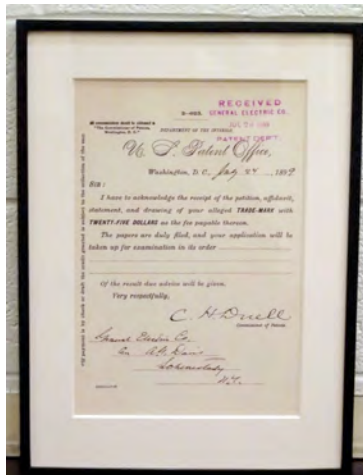 RECEIVED
2-465. GENERAL ELECTRIC CO.,
JUL 1899
PATENT DEPT.
All communications should be addressed to
"The Commissioner of Patents,
Washington, D. C."
DEPARTMENT OF THE INTERIOR
U. S. Patent Office,
Washington, D. C., July 24, 1899
SIR:
I have to acknowledge the receipt of the petition, affidavit,
statement, and drawing of your alleged TRADE-MARK with
TWENTY-FIVE DOLLARS as the fee payable thereon.
The papers are duly filed, and your application will be
taken up for examination in its order
Of the result due advice will be given.
Very respectfully,
C. H. Duell
Commissioner of Patents.
General Electric Co.
A. G. Davis
Schenectady
N.Y.